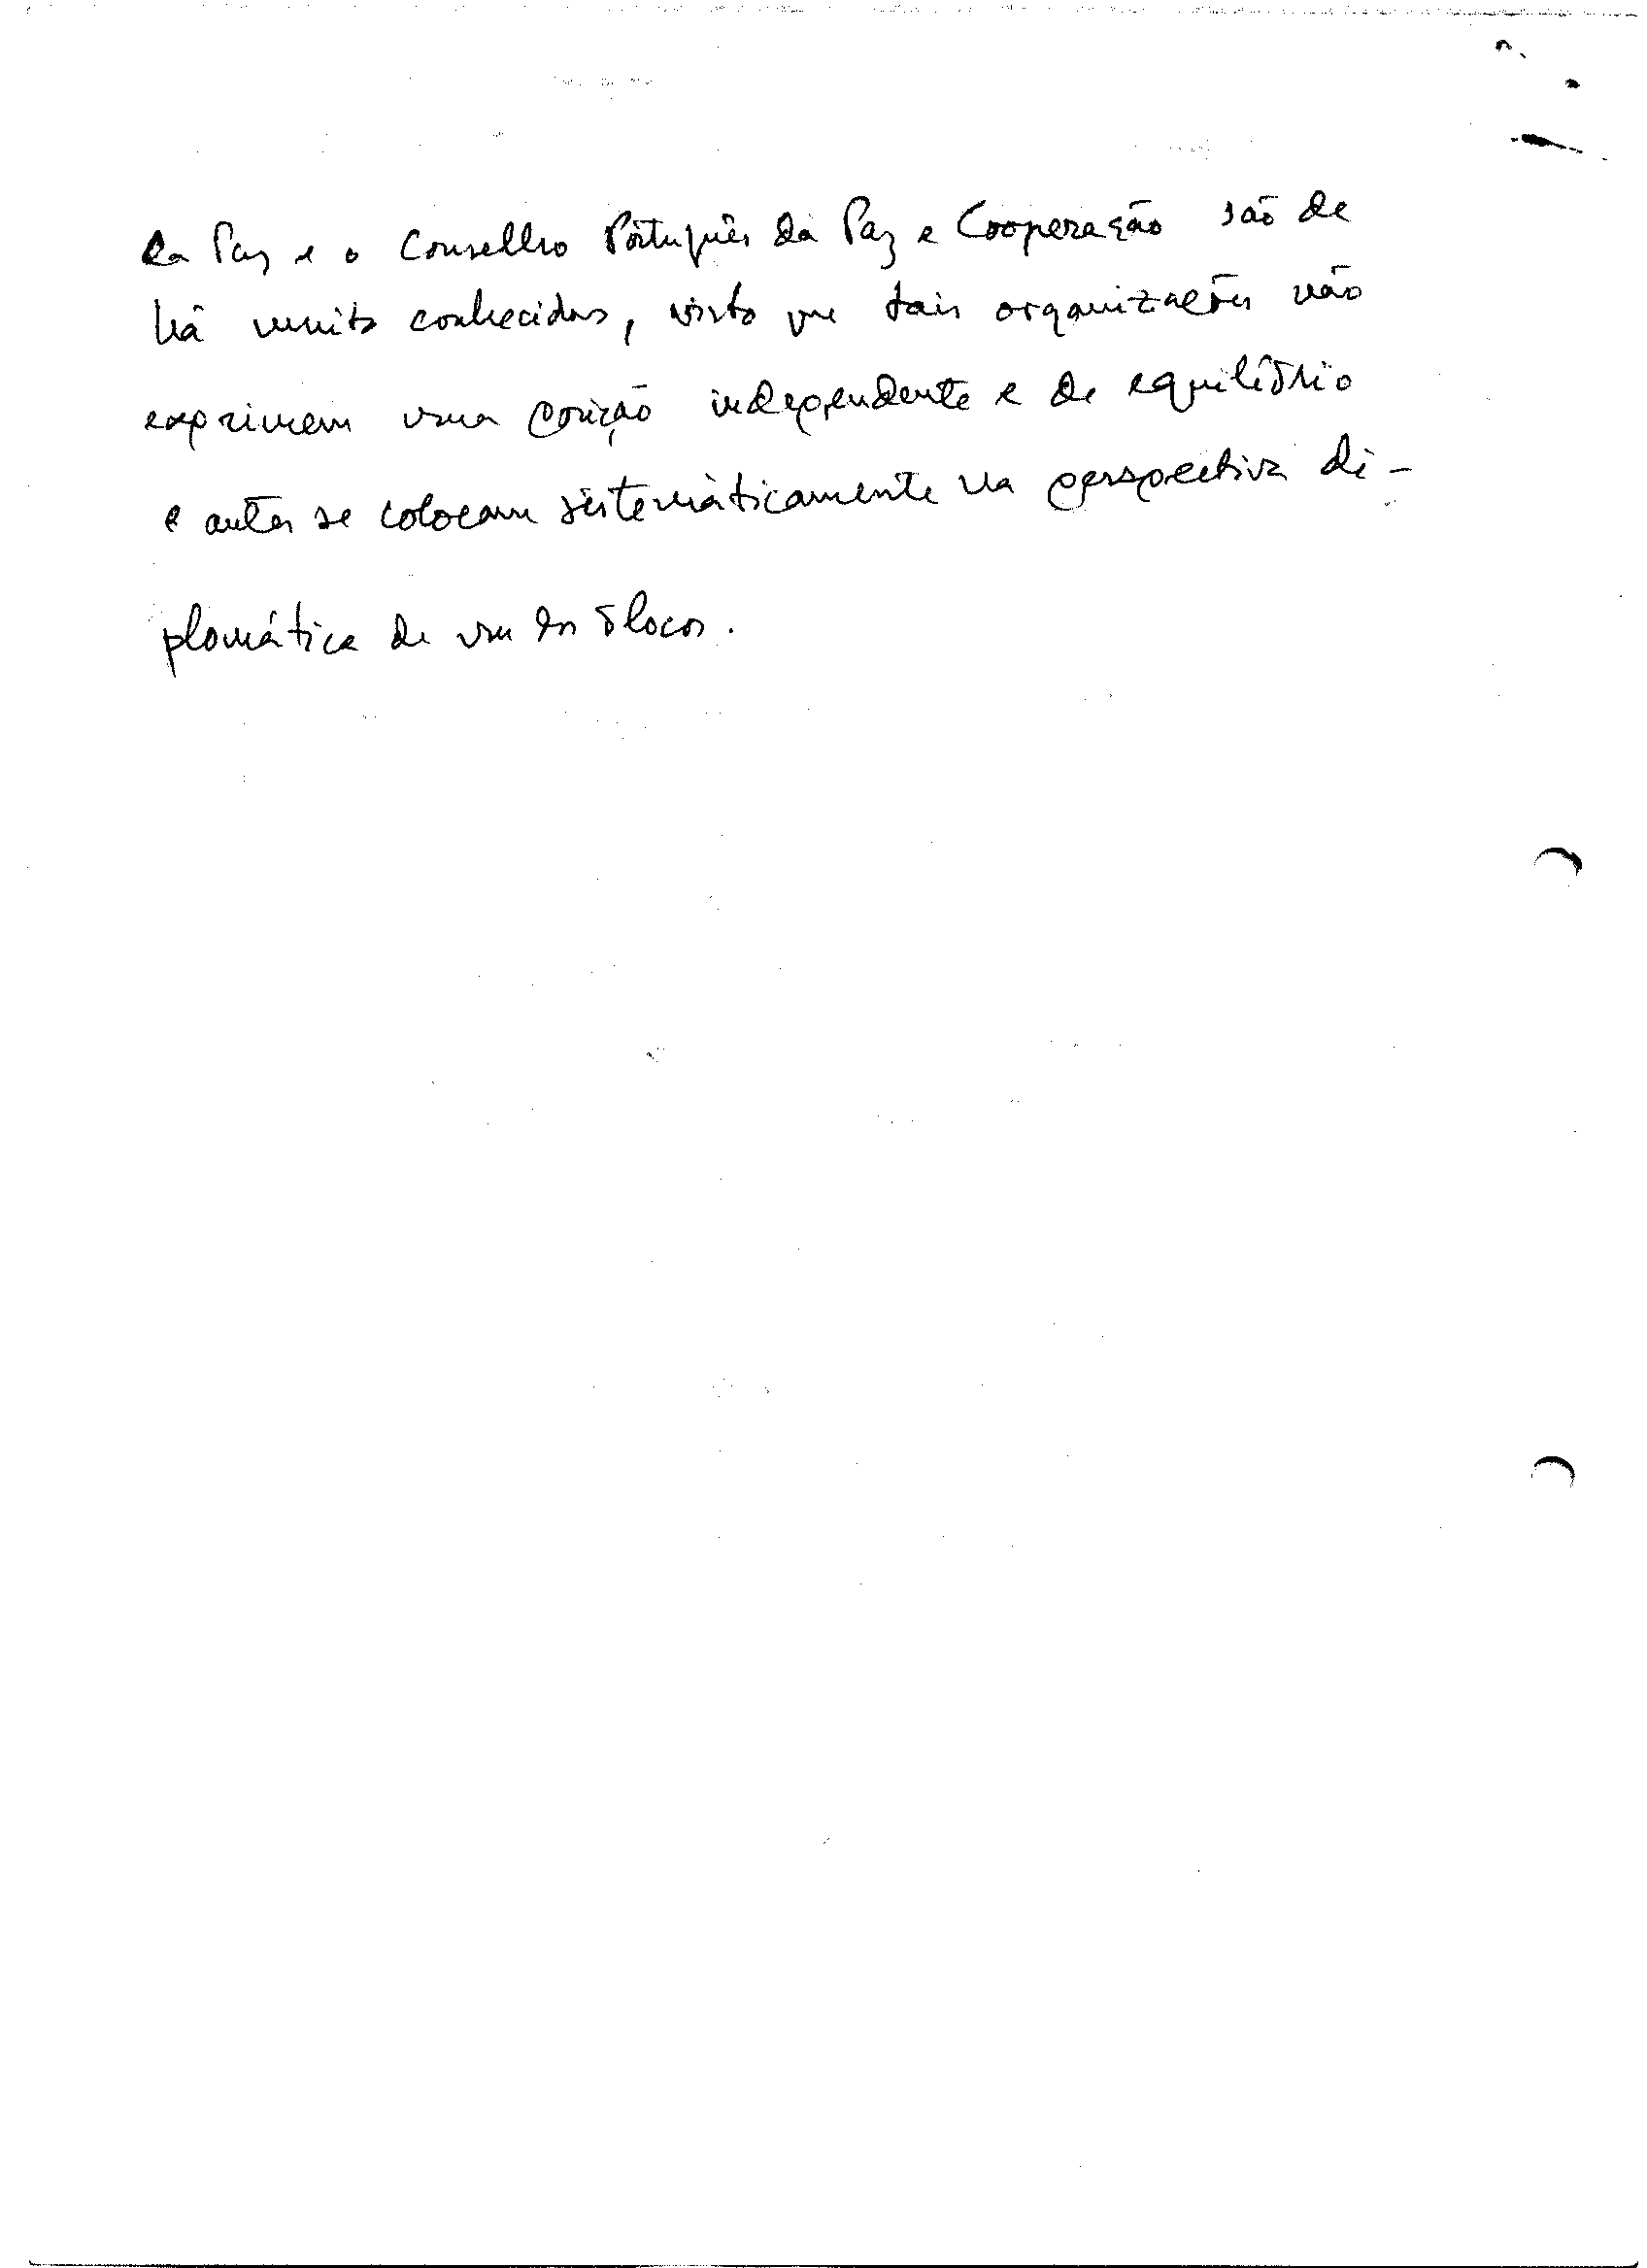 da Paz e o Conselho Português da Paz e Cooperação são de
há muito conhecidas, visto que tais organizações não
exprimem uma posição independente e de equilíbrio
e antes se colocam sistemàticamente na perspectiva di-
plomática de um dos blocos.